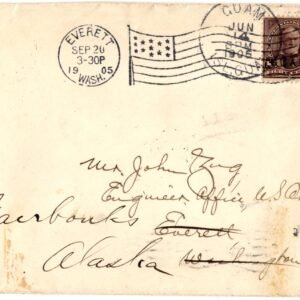 EVERETT
SEP 20
3-30P
1905
WASH.
GUAM
JUN
14
1905
Mr John
Engineer Office, U.S.
Fairbanks Everett
Alaska Washington